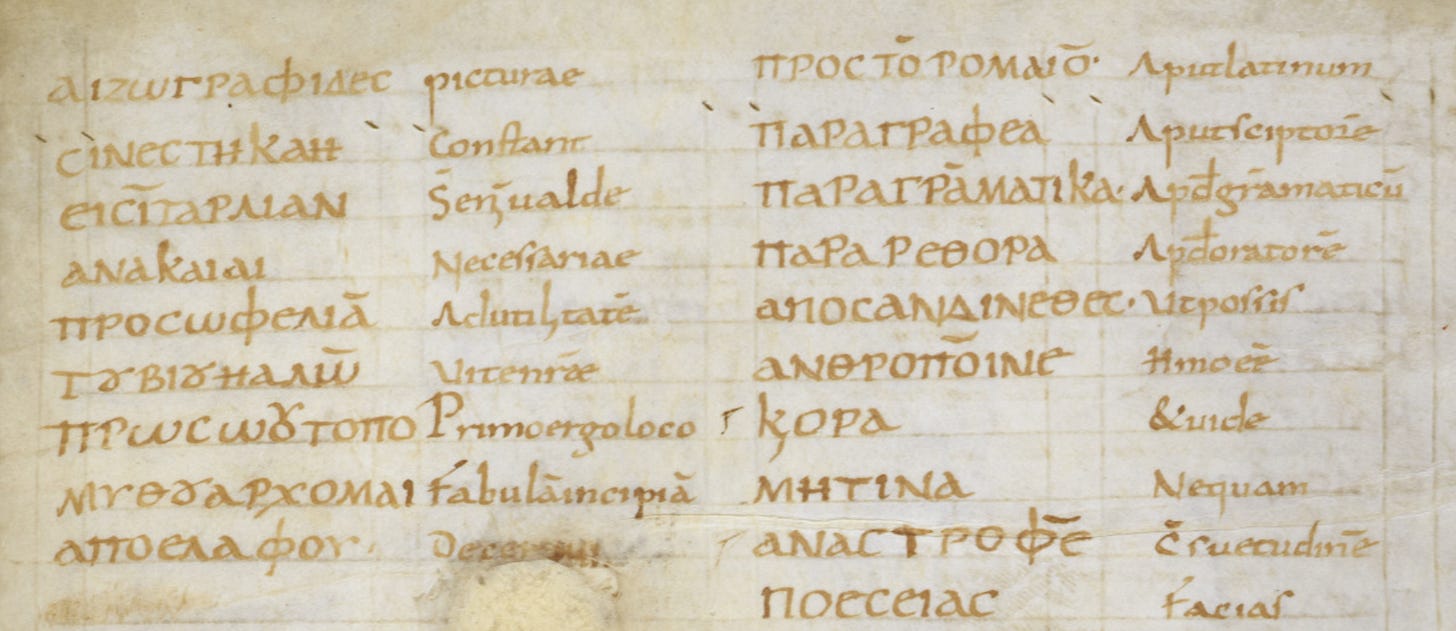 ΑΙΖωΓΡΑΦΙΔΕC picturae
CΙΝΕCΤΗΚΑΗ Constant
ΕΙCῙΠΑΡΛΙΑΝ S̄ enĪ ualde
ΑΝΑΚΑΙΑΙ Necessariae
ΠΡΟCωΦΕΛΙᾹ Adutilitatē
ΤȣΒΙȣΗΑΛω̄ Uitenr̄ae
ΠΡωCωȣΤΟΠΟ Primoergoloco
ΜΥΘȣΑΡΧΟΜΑΙ Fabulāincipiā
ΑΠΟΕΛΑΦΟΥ·
ΠΡΟCΤΟ̄ΡΟΜΑΙΟ̄· Aputlatinum
ΠΑΡΑΓΡΑΦΕΑ Aputsciptorē
ΠΑΡΑΓΡᾹΜΑΤΙΚΑ· Apđgrāmaticū
ΠΑΡΑΡΕΘΟΡΑ Apđoratorē
ΑΠΟCΑΝΔΙΝΕΘΕC· Utpossis
ΑΝΘΡΟΠΟ̄ΙΝΕ Hmoeē
ϗΟΡΑ &uide
ΜΗΤΙΝΑ Nequam
ΑΝΑCΤΡΟΦΕ̄ c̄suetudinē
ΠΟΕCΕΙΑC Facias